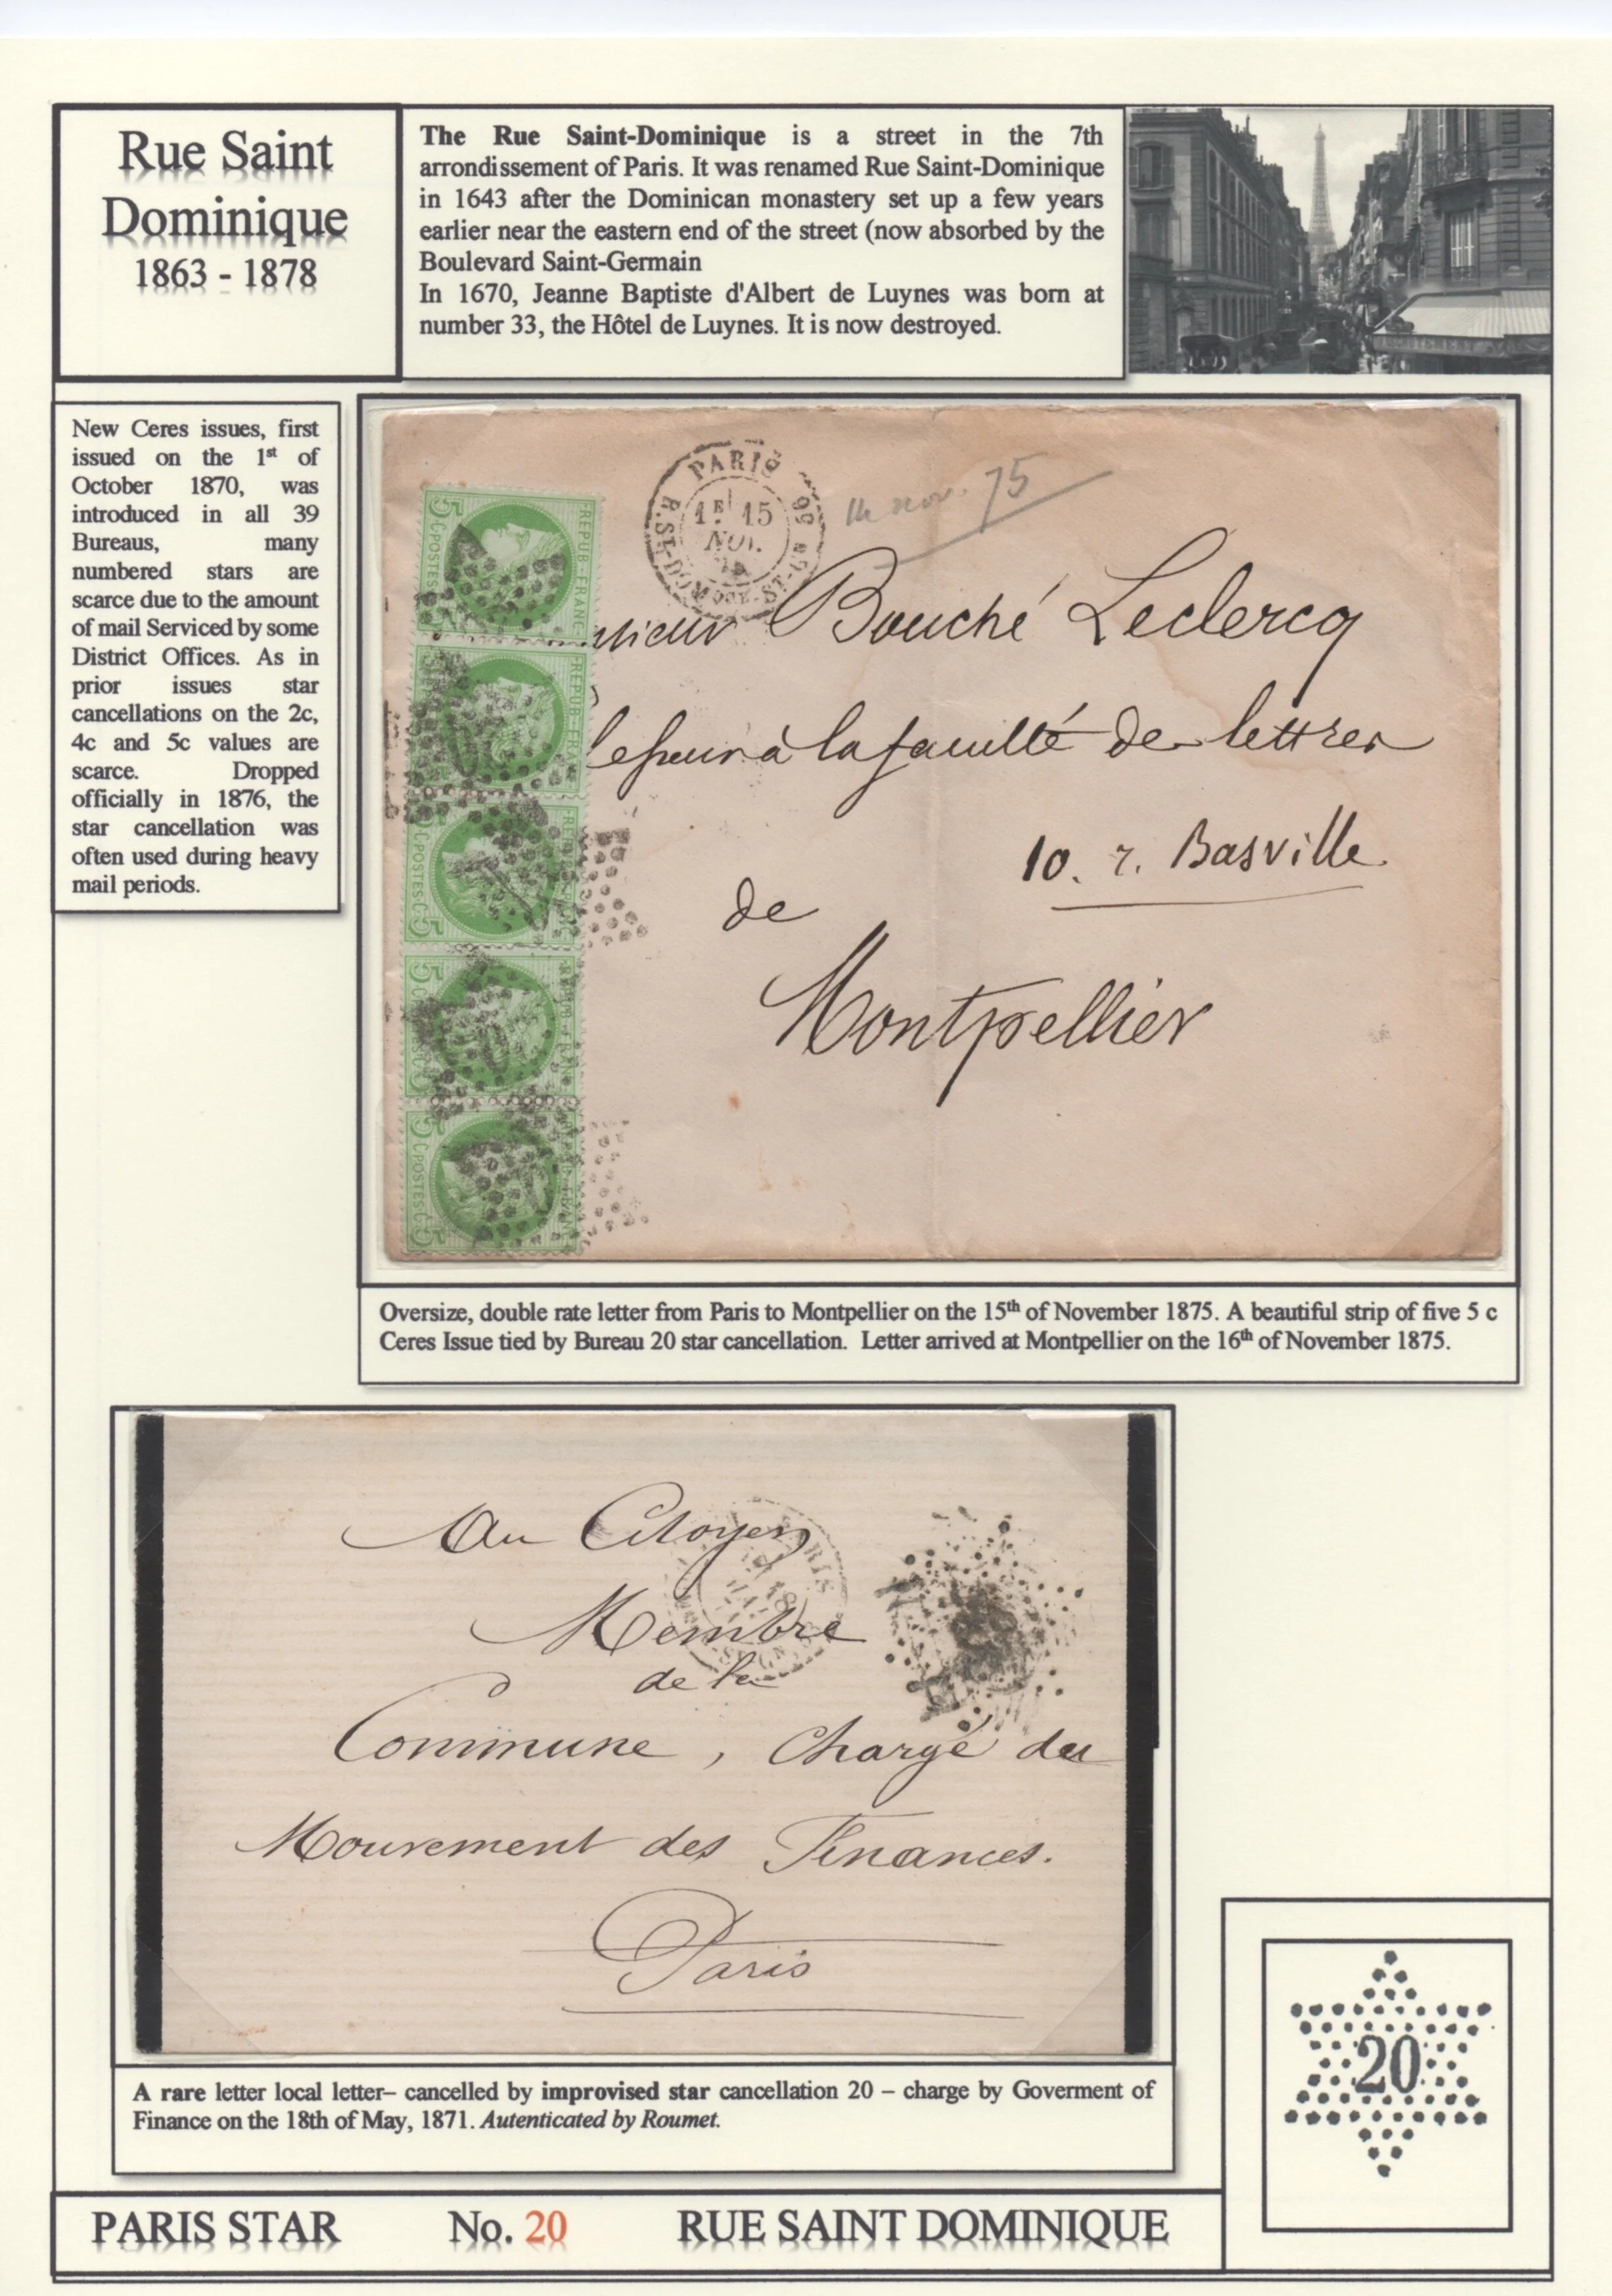 Rue Saint
Dominique
1863 - 1878
The Rue Saint-Dominique is a street in the 7th
arrondissement of Paris. It was renamed Rue Saint-Dominique
in 1643 after the Dominican monastery set up a few years
earlier near the eastern end of the street (now absorbed by the
Boulevard Saint-Germain
In 1670, Jeanne Baptiste d'Albert de Luynes was born at
number 33, the Hôtel de Luynes. It is now destroyed.
New Ceres issues, first
issued on the 1st of
October 1870, was
introduced in all 39
Bureaus, many
numbered stars are
scarce due to the amount
of mail Serviced by some
District Offices. As in
prior issues star
cancellations on the 2c,
4c and 5c values are
scarce. Dropped
officially in 1876, the
star cancellation was
often used during heavy
mail periods.
PARIS
1E 15
NOV.
75
R. ST-DOMQUE-ST-GN 66
14 nov. 75
REPUB-FRANC
5 C·POSTES·C 5
REPUB-FRANC
POSTES·C 5
5 C·POSTES·C 5
5 C·POSTES·C 5
sieur Bouché Leclercq
à la faculté de lettres
10. r. Basville
de
Montpellier
Oversize, double rate letter from Paris to Montpellier on the 15th of November 1875. A beautiful strip of five 5 c
Ceres Issue tied by Bureau 20 star cancellation. Letter arrived at Montpellier on the 16th of November 1875.
Au Citoyen
Membre
de la
Commune, Chargé du
Mouvement des Finances.
Paris
PARIS
18
A rare letter local letter– cancelled by improvised star cancellation 20 – charge by Goverment of
Finance on the 18th of May, 1871. Autenticated by Roumet.
20
PARIS STAR No. 20 RUE SAINT DOMINIQUE